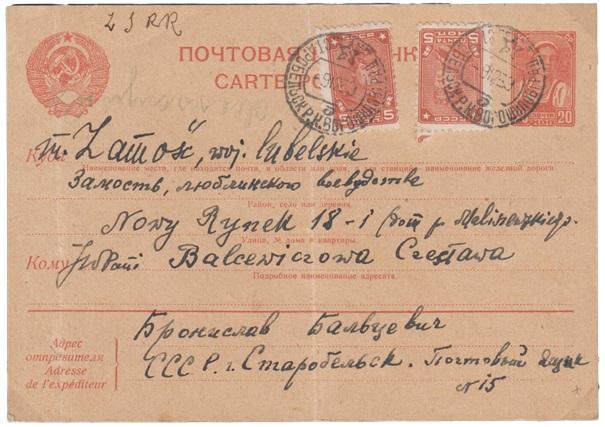 Z S R R
ПОЧТОВАЯ
CARTE
ПОЧТА СССР
5 КОП.
20
КОП.
Куда m. Zamość, woj. lubelskie
Наименование места, где находится почта, и области или края, а для станций — наименование железной дороги
Замость, люблинского воеводства
Район, село или деревня.
Nowy Rynek 18-1 (dom p.
Улица, № дома и квартиры.
Кому WPani Balcewiczowa Czesława
Подробное наименование адресата.
Бронислав Бальцевич
Адрес
отправителя
СССР. г. Старобельск. Почтовый ящик
Adresse
de l'expéditeur
N 15